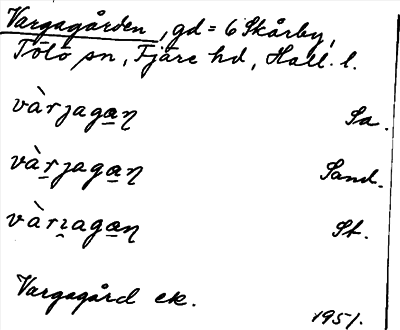 Vargagården, gd = 6 Skårby,
Tölö sn, Fjäre hd, Hall. l.
vàrjaga̲ŋ Sa.
vàr̲jaga̲ŋ Sand.
vàrı̲aga̲ŋ St.
Vargagård ek.
1951.